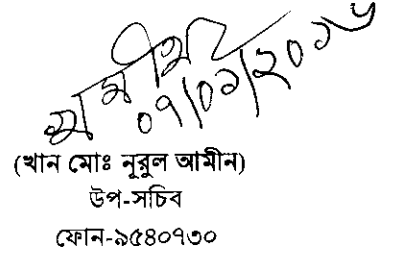 ০৭/০১/২০১৬
(খান মোঃ নূরুল আমীন)
উপ-সচিব
ফোন-৯৫৪০৭৩০